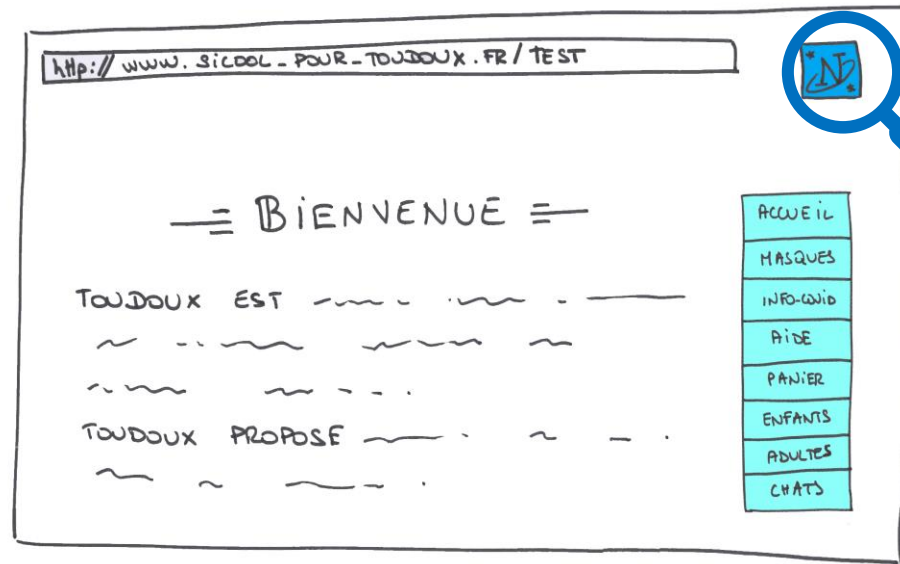 http:// www.sicool-pour-toudoux.FR/TEST
N
BIENVENUE
TOUDOUX EST
TOUDOUX PROPOSE
ACCUEIL
MASQUES
INFO-COVID
AIDE
PANIER
ENFANTS
ADULTES
CHATS